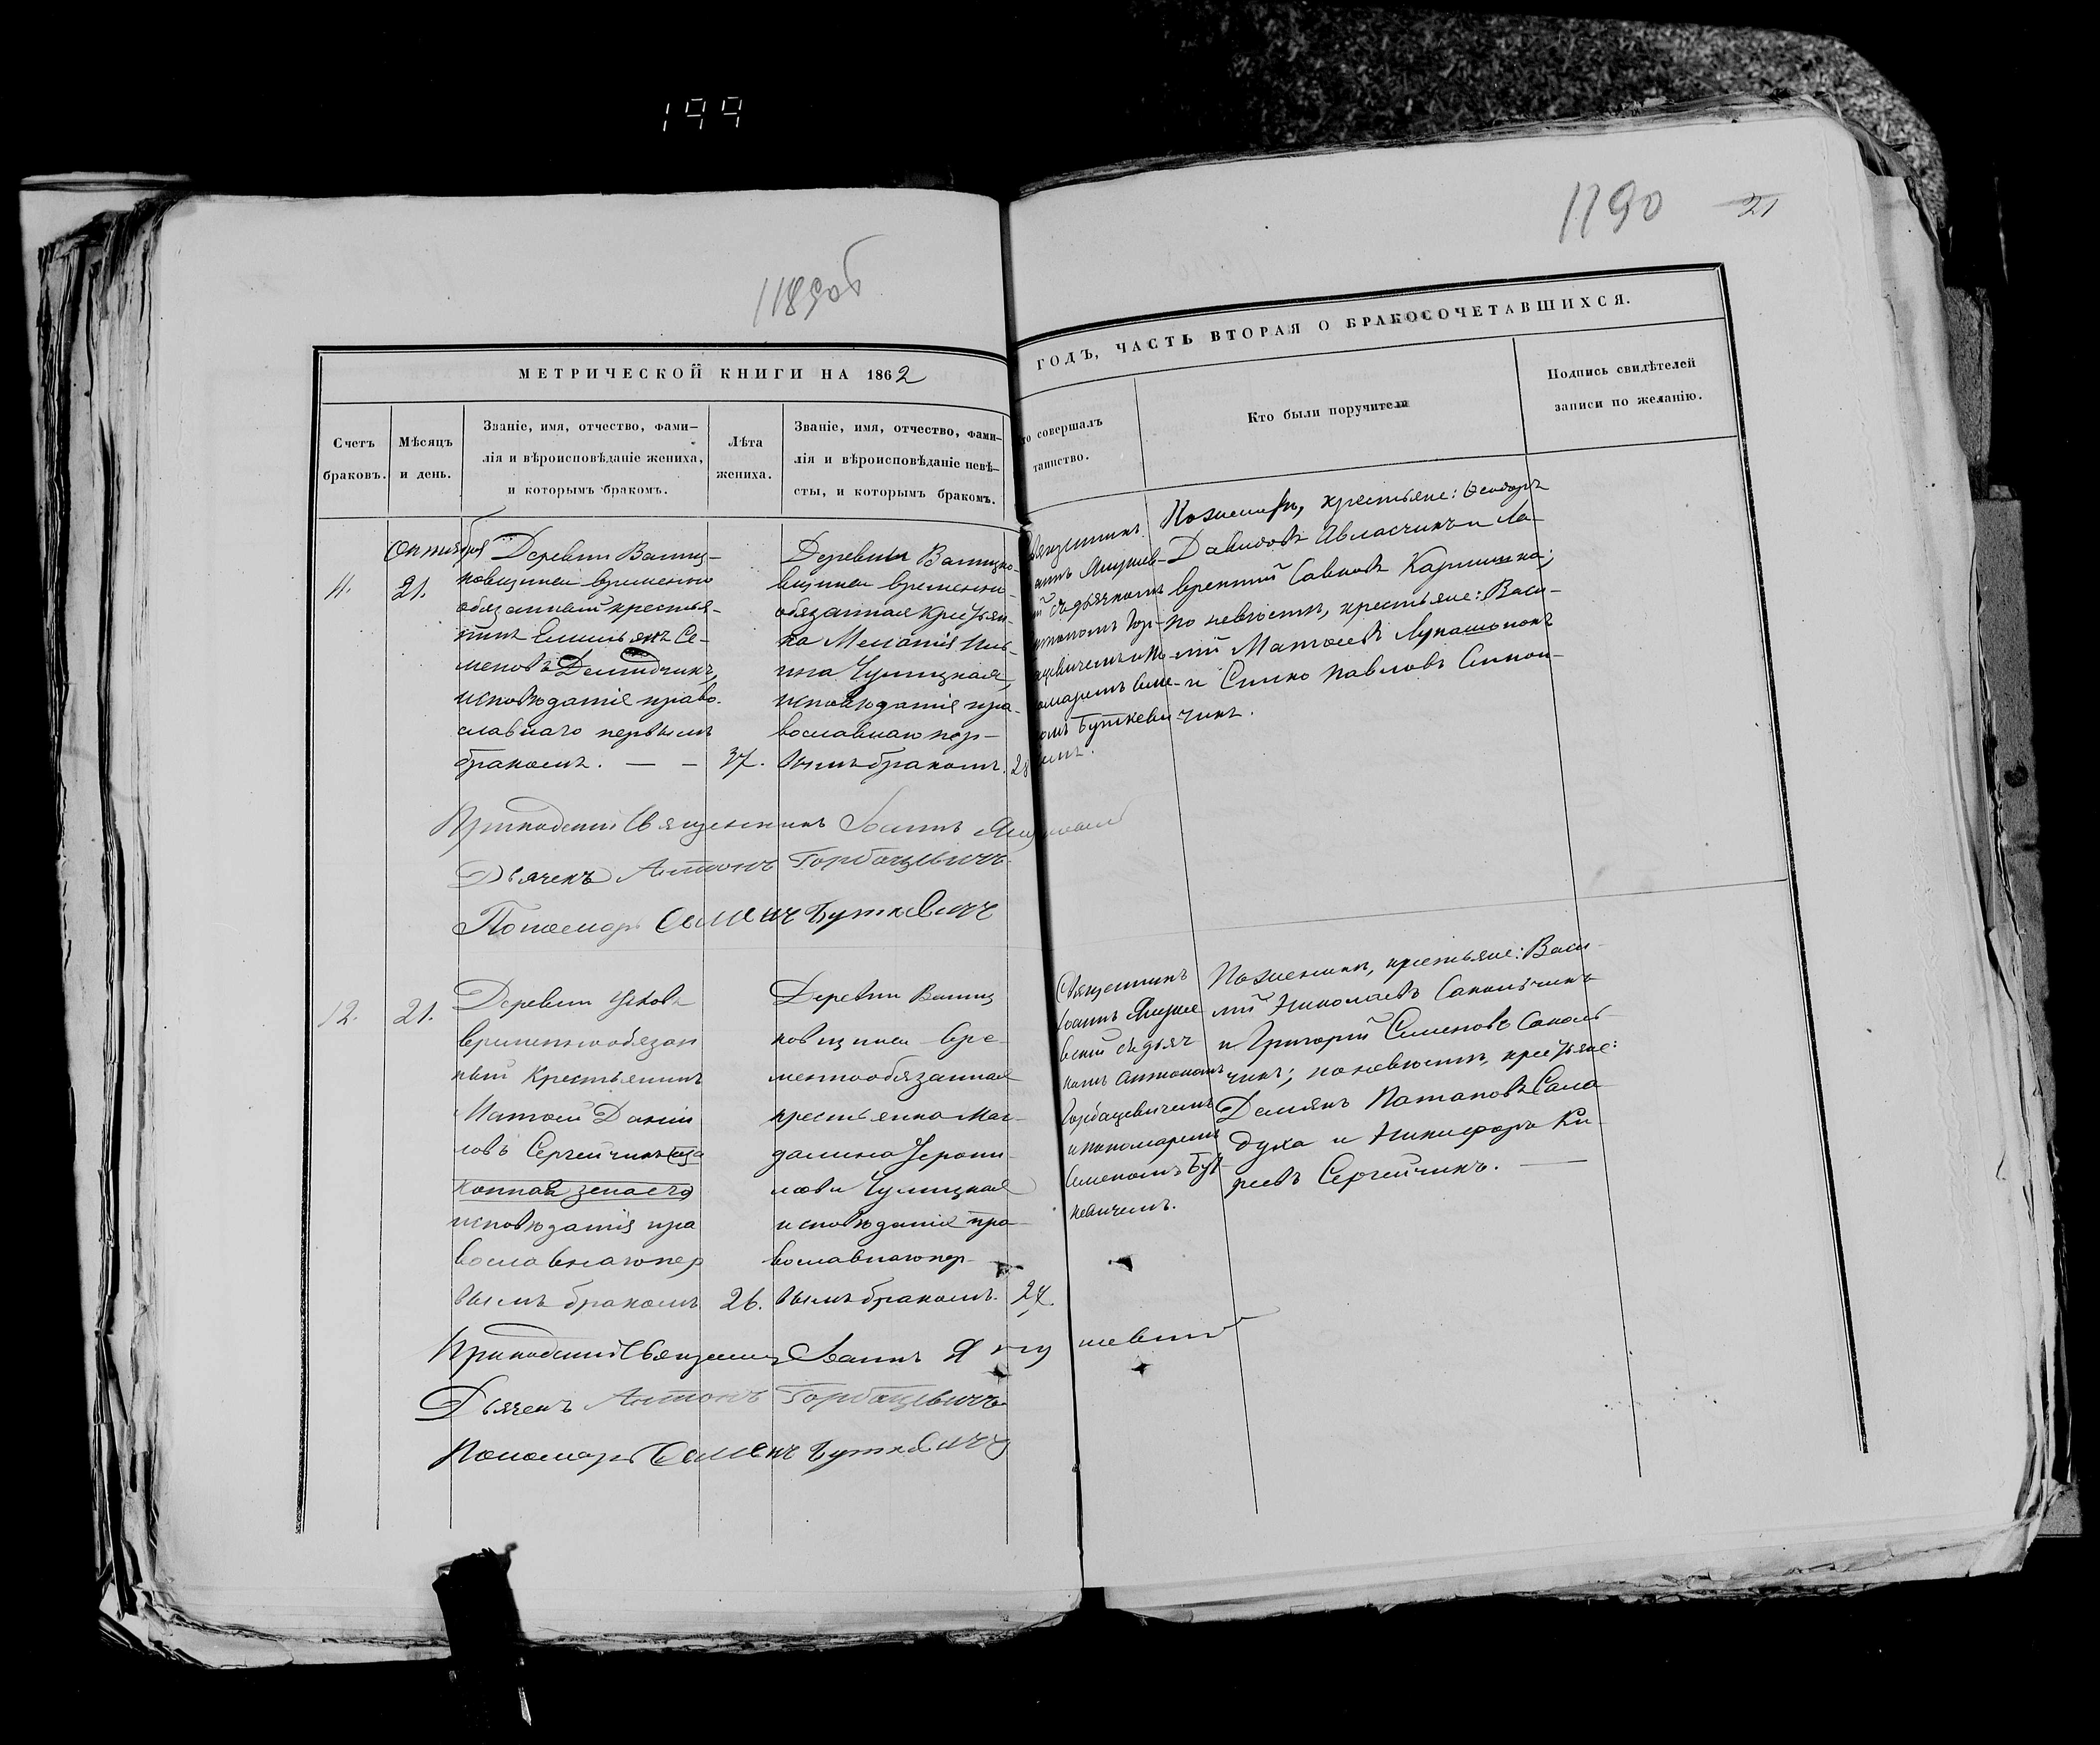 199
1189об
1190
21
МЕТРИЧЕСКОЙ КНИГИ НА 1862
ГОДЪ, ЧАСТЬ ВТОРАЯ О БРАКОСОЧЕТАВШИХСЯ.
Счетъ
браковъ.
Мѣсяцъ
и день.
Званіе, имя, отчество, фами-
лія и вѣроисповѣданіе жениха,
и которымъ бракомъ.
Лѣта
жениха.
Званіе, имя, отчество, фами-
лія и вѣроисповѣданіе невѣ-
сты, и которымъ бракомъ.
то совершалъ
таинство.
Кто были поручители
Подпись свидѣтелей
записи по желанію.
11.
Октября
21.
Деревни
новщизны временно
обязанный крестья-
нинъ Емильянъ Се-
меновъ Демидчикъ,
исповѣданія право-
славнаго первымъ
бракомъ. — —
37.
Деревни
вщизны временно-
обязанная крестьян-
ка Меланія
Чулицкая,
исповѣданія пра-
вославнаго пер-
вымъ бракомъ.
28
Священникъ
съ дьячкомъ
Антономъ Гор-
бацевичемъ и по-
номаремъ Семе-
номъ Буткеви-
чемъ.
По женихѣ, крестьяне: Ѳеодоръ
Давидовъ Авласчикъ и Ла-
врентій Савновъ
по невѣстѣ, крестьяне: Васи-
лій Матѳеевъ
и Симко Павловъ Симон-
чикъ.
Приходскій Священникъ Іоаннъ
Дьячекъ Антонъ Горбацевичъ
Пономарь Семенъ Буткевичъ
12.
21.
Деревни
временнообязан
ный Крестьянинъ
Матѳей Данiи
ловъ Сергейчикъ за
конная жена его
исповѣданія пра
вославнаго пер
вымъ бракомъ
26.
Деревни
новщизны вре-
меннообязанная
крестьянка Маг-
далина Герони-
мова Чулицкая
исповѣданія пра-
вославнаго пер-
вымъ бракомъ.
24.
Священникъ
Іоаннъ Якуше
вскій съ дьяч
комъ Антономъ
Горбацевичемъ
и пономаремъ
Семеномъ Бут-
кевичемъ.
По женихѣ, крестьяне: Васи-
лій Николаевъ Саколъчикъ
и Григорій Семеновъ Саколь-
чикъ; по невѣстѣ, крестьяне:
Демянъ Потаповъ Сала
духа и Никифоръ Ки-
реевъ Сергейчикъ. —
Приходскій Священникъ Іоаннъ Якушевскій
Дьячекъ Антонъ Горбацевичъ
Пономарь Семенъ Буткевичъ